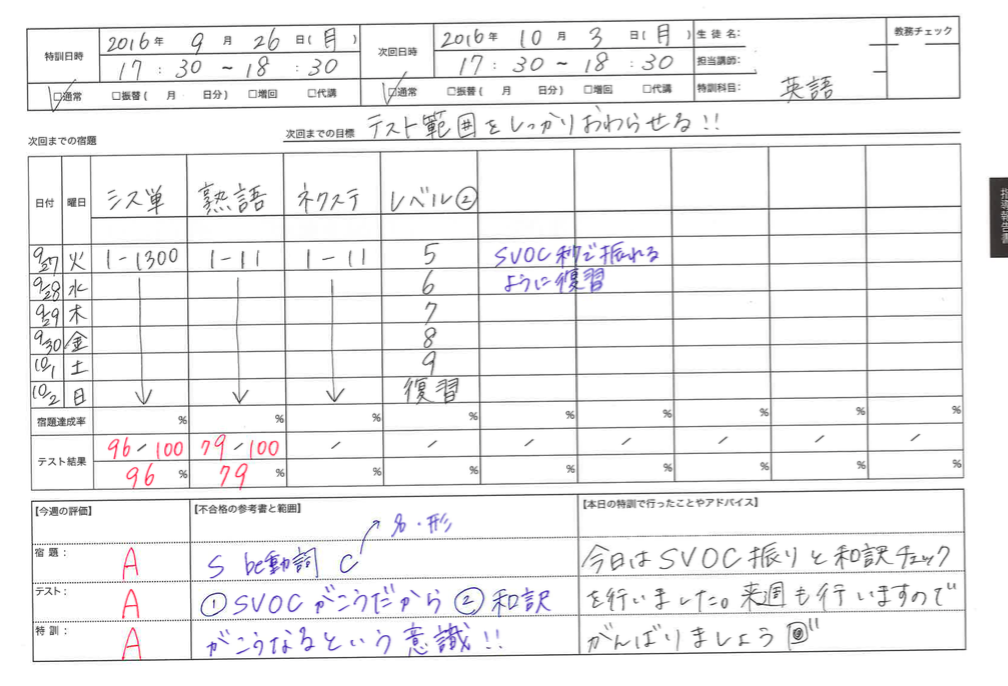 特訓日時 2016年 9月 26日(月) 次回日時 2016年 10月 3日(月) 生徒名: 教務チェック
17:30~18:30 17:30~18:30 担当講師:
□通常 □振替( 月 日分) □増回 □代講 □通常 □振替( 月 日分) □増回 □代講 特訓科目: 英語
次回までの宿題 次回までの目標 テスト範囲をしっかりおわらせる!!
日付 曜日 シス単 熟語 ネクステ レベル②
指導報告書
9/27 火 1-1300 1-11 1-11 5 SVOC 秒で振れる
9/28 水 6 ように復習
9/29 木 7
9/30 金 8
10/1 土 9
10/2 日 復習
宿題達成率 % % % % % % % % %
テスト結果 96/100 79/100 / / / / / / /
96% 79% % % % % % % %
【今週の評価】 【不合格の参考書と範囲】 【本日の特訓で行ったことやアドバイス】
名・形
宿題: A S be動詞 C 今日はSVOC振りと和訳チェック
テスト: A ①SVOCがこうだから②和訳 を行いました。来週も行いますので
特訓: A がこうなるという意識!! がんばりましょう